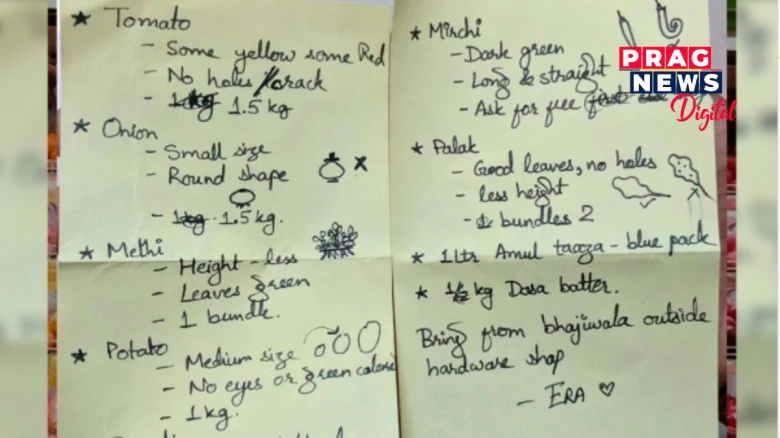 ★ Tomato
- Some yellow some Red
- No holes/crack
- 1.5 kg
★ Onion
- Small size
- Round shape
- 1.5 kg.
★ Methi
- Height - less
- Leaves green
- 1 bundle.
★ Potato
- Medium size
- No eyes or green
- 1 kg.
★ Mirchi
- Dark green
- Long & straight
- Ask for free
★ Palak
- Good leaves, no holes
- less height
- bundles 2
★ 1 Ltr Amul taaza - blue pack
★ 1/2 kg Dosa batter.
Bring from bhajiwala outside
hardware shop
- ERA ♡
PRAG
NEWS
Digital